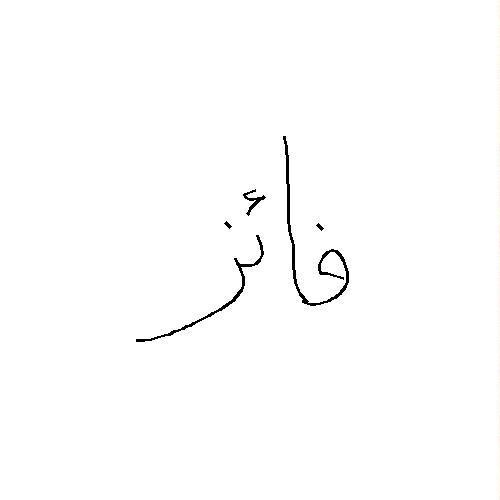 فائز